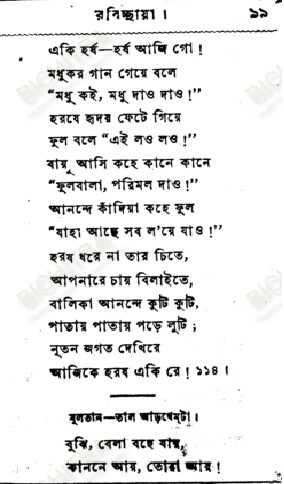 রবিচ্ছায়া। ১৯
একি হর্ষ—হর্ষ আজি গো!
মধুকর গান গেয়ে বলে
“মধু কই, মধু দাও দাও!”
হরষে হৃদয় ফেটে গিয়ে
ফুল বলে “এই লও লও!”
বায়ু আসি কহে কানে কানে
“ফুলবালা, পরিমল দাও!”
আনন্দে কাঁদিয়া কহে ফুল
“যাহা আছে সব ল'য়ে যাও!”
হরষ ধরে না তার চিতে,
আপনারে চায় বিলাইতে,
বালিকা আনন্দে কুটি কুটি,
পাতায় পাতায় পড়ে লুটি;
নূতন জগত দেখিরে
আজিকে হরষ একি রে! ১১৪।
মূলতান—তাল আড়খেমটা।
বুঝি, বেলা বহে যায়,
কাননে আয়, তোরা আয়!